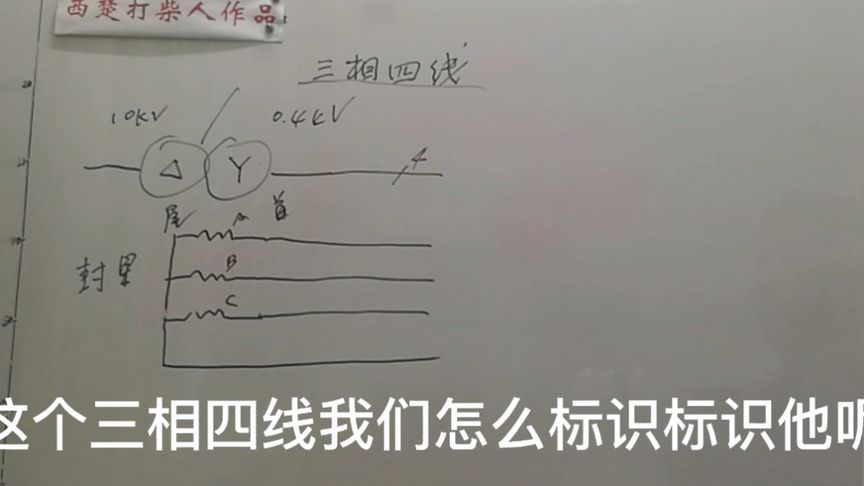 西楚打柴人作品
三相四线
10KV 0.4KV
Δ Y 4
尾 A 首
B
封星
C
这个三相四线我们怎么标识标识他呢